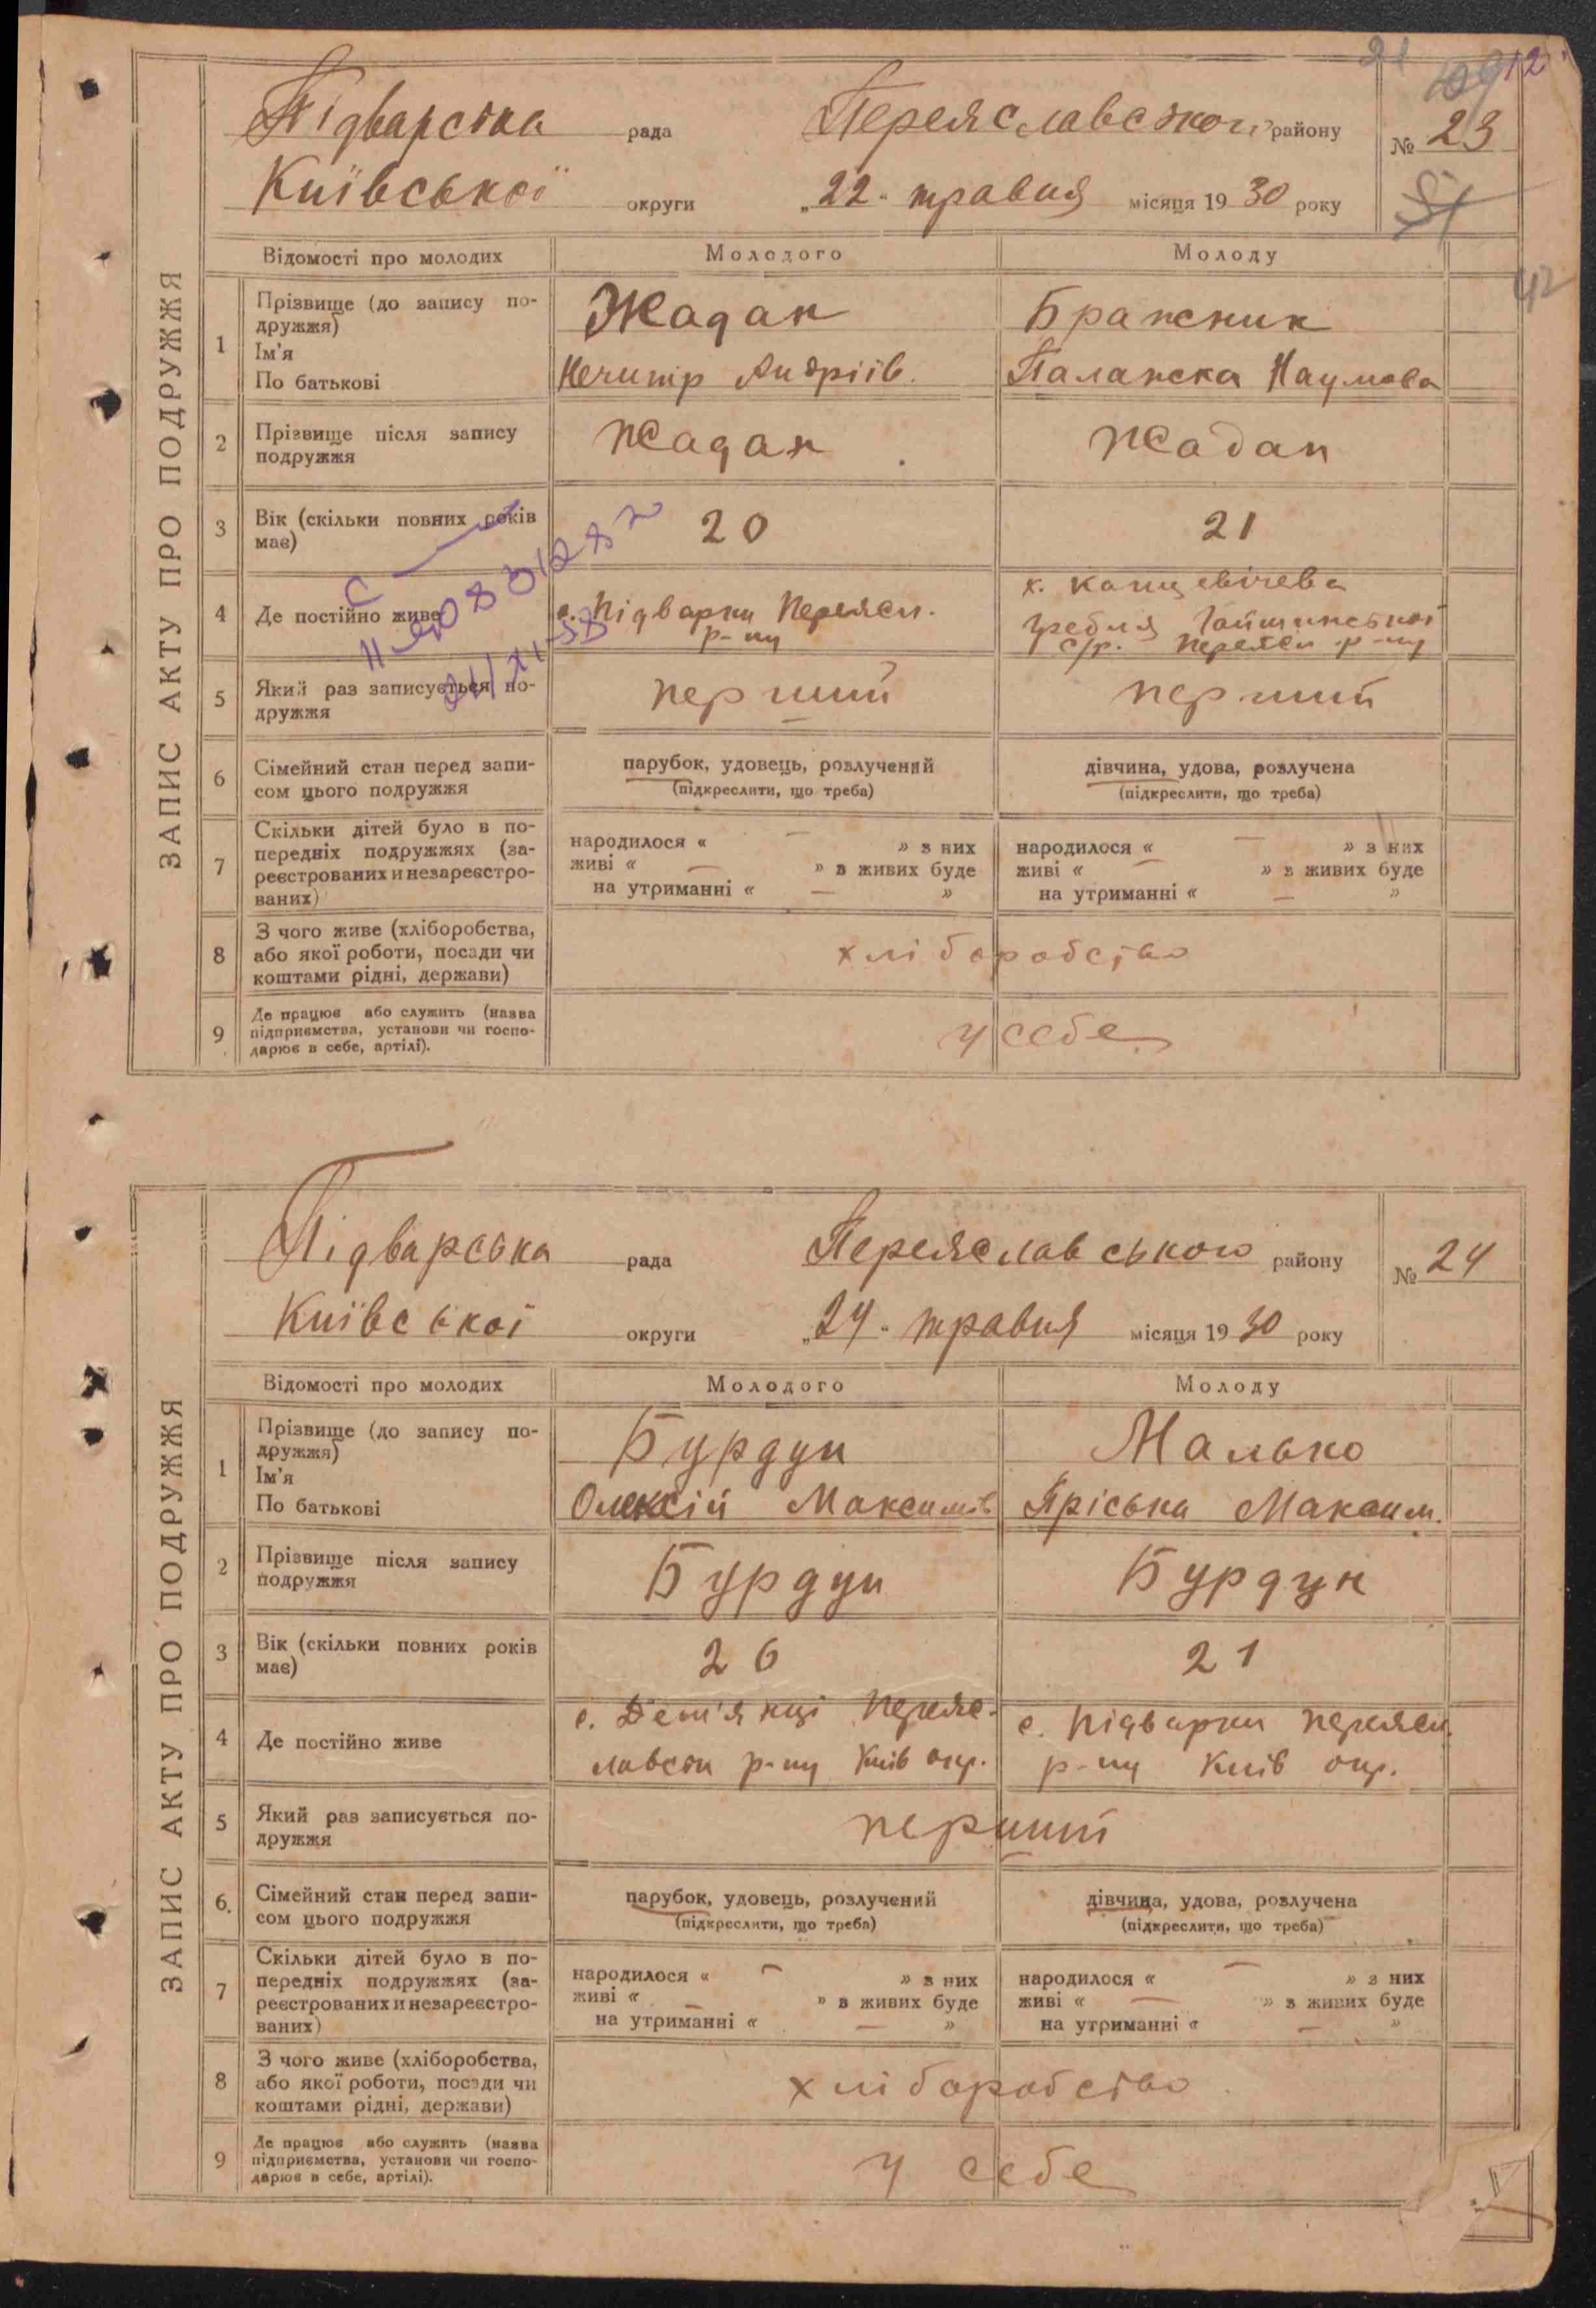 Підварська рада Переяславського району № 23
Київської округи „22“ травня місяця 1930 року
42
ЗАПИС АКТУ ПРО ПОДРУЖЖЯ
Відомості про молодих Молодого Молоду
1 Прізвище (до запису по-
дружжя) Жадан Бражник
Ім'я
По батькові Нечипір Андріїв. Палажка Наумова
2 Прізвище після запису
подружжя Жадан Жадан
3 Вік (скільки повних років
має) 20 21
4 Де постійно живе с. Підварки Переясл.
р-ну
х.
гребля
с/р. Переясл р-ну
5 Який раз записується по-
дружжя перший перший
6 Сімейний стан перед запи-
сом цього подружжя
парубок, удовець, розлучений дівчина, удова, розлучена
(підкреслити, що треба) (підкреслити, що треба)
7 Скільки дітей було в по-
передніх подружжях (за-
реєстрованих и незареєстро-
ваних)
народилося « — » з них народилося « — » з них
живі « — » з живих буде живі « — » з живих буде
на утриманні « — » на утриманні « — »
8 З чого живе (хліборобства,
або якої роботи, посади чи
коштами рідні, держави) хліборобство
9 Де працює або служить (назва
підприємства, установи чи госпо-
дарює в себе, артілі). у себе
Підварська рада Переяславського району № 24
Київської округи „24“ травня місяця 1930 року
ЗАПИС АКТУ ПРО ПОДРУЖЖЯ
Відомості про молодих Молодого Молоду
1 Прізвище (до запису по-
дружжя) Бурдун Малько
Ім'я
По батькові Олексій Максимів Пріська Максим.
2 Прізвище після запису
подружжя Бурдун Бурдун
3 Вік (скільки повних років
має) 26 21
4 Де постійно живе с. Дем'янці Переяс-
лавськ р-ну Київ окр.
с. Підварки Переясл.
р-ну Київ окр.
5 Який раз записується по-
дружжя перший
6. Сімейний стан перед запи-
сом цього подружжя
парубок, удовець, розлучений дівчина, удова, розлучена
(підкреслити, що треба) (підкреслити, що треба)
7 Скільки дітей було в по-
передніх подружжях (за-
реєстрованих и незареєстро-
ваних)
народилося « — » з них народилося « — » з них
живі « — » з живих буде живі « — » з живих буде
на утриманні « — » на утриманні « — »
8 З чого живе (хліборобства,
або якої роботи, посади чи
коштами рідні, держави) хліборобство
9 Де працює або служить (назва
підприємства, установи чи госпо-
дарює в себе, артілі). у себе